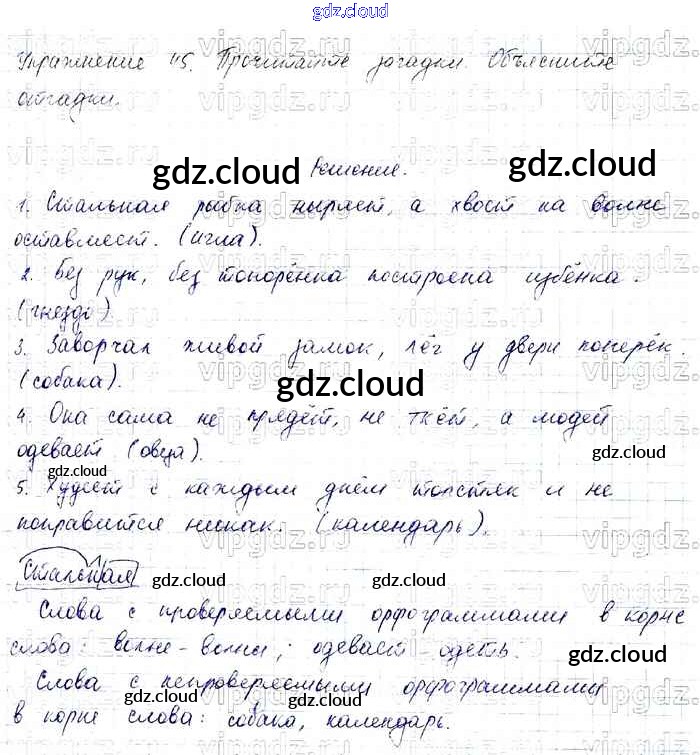 gdz.cloud
Упражнение 115. Прочитайте загадки. Объясните
отгадки.
Решение.
1. Стальная рыбка ныряет, а хвост на волне
оставляет. (игла).
2. Без рук, без топорёнка построена избёнка.
(гнездо)
3. Заворчал живой замок, лёг у двери поперёк.
(собака).
4. Она сама не прядёт, не ткёт, а людей
одевает (овца).
5. Худеет с каждым днём толстяк и не
поправится никак. (календарь).
Стальная
Слова с проверяемыми орфограммами в корне
слова: волне - волны; одевает - одеть.
Слова с непроверяемыми орфограммами
в корне слова: собака, календарь.